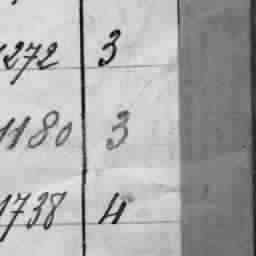 1272 3
1180 3
1738 4